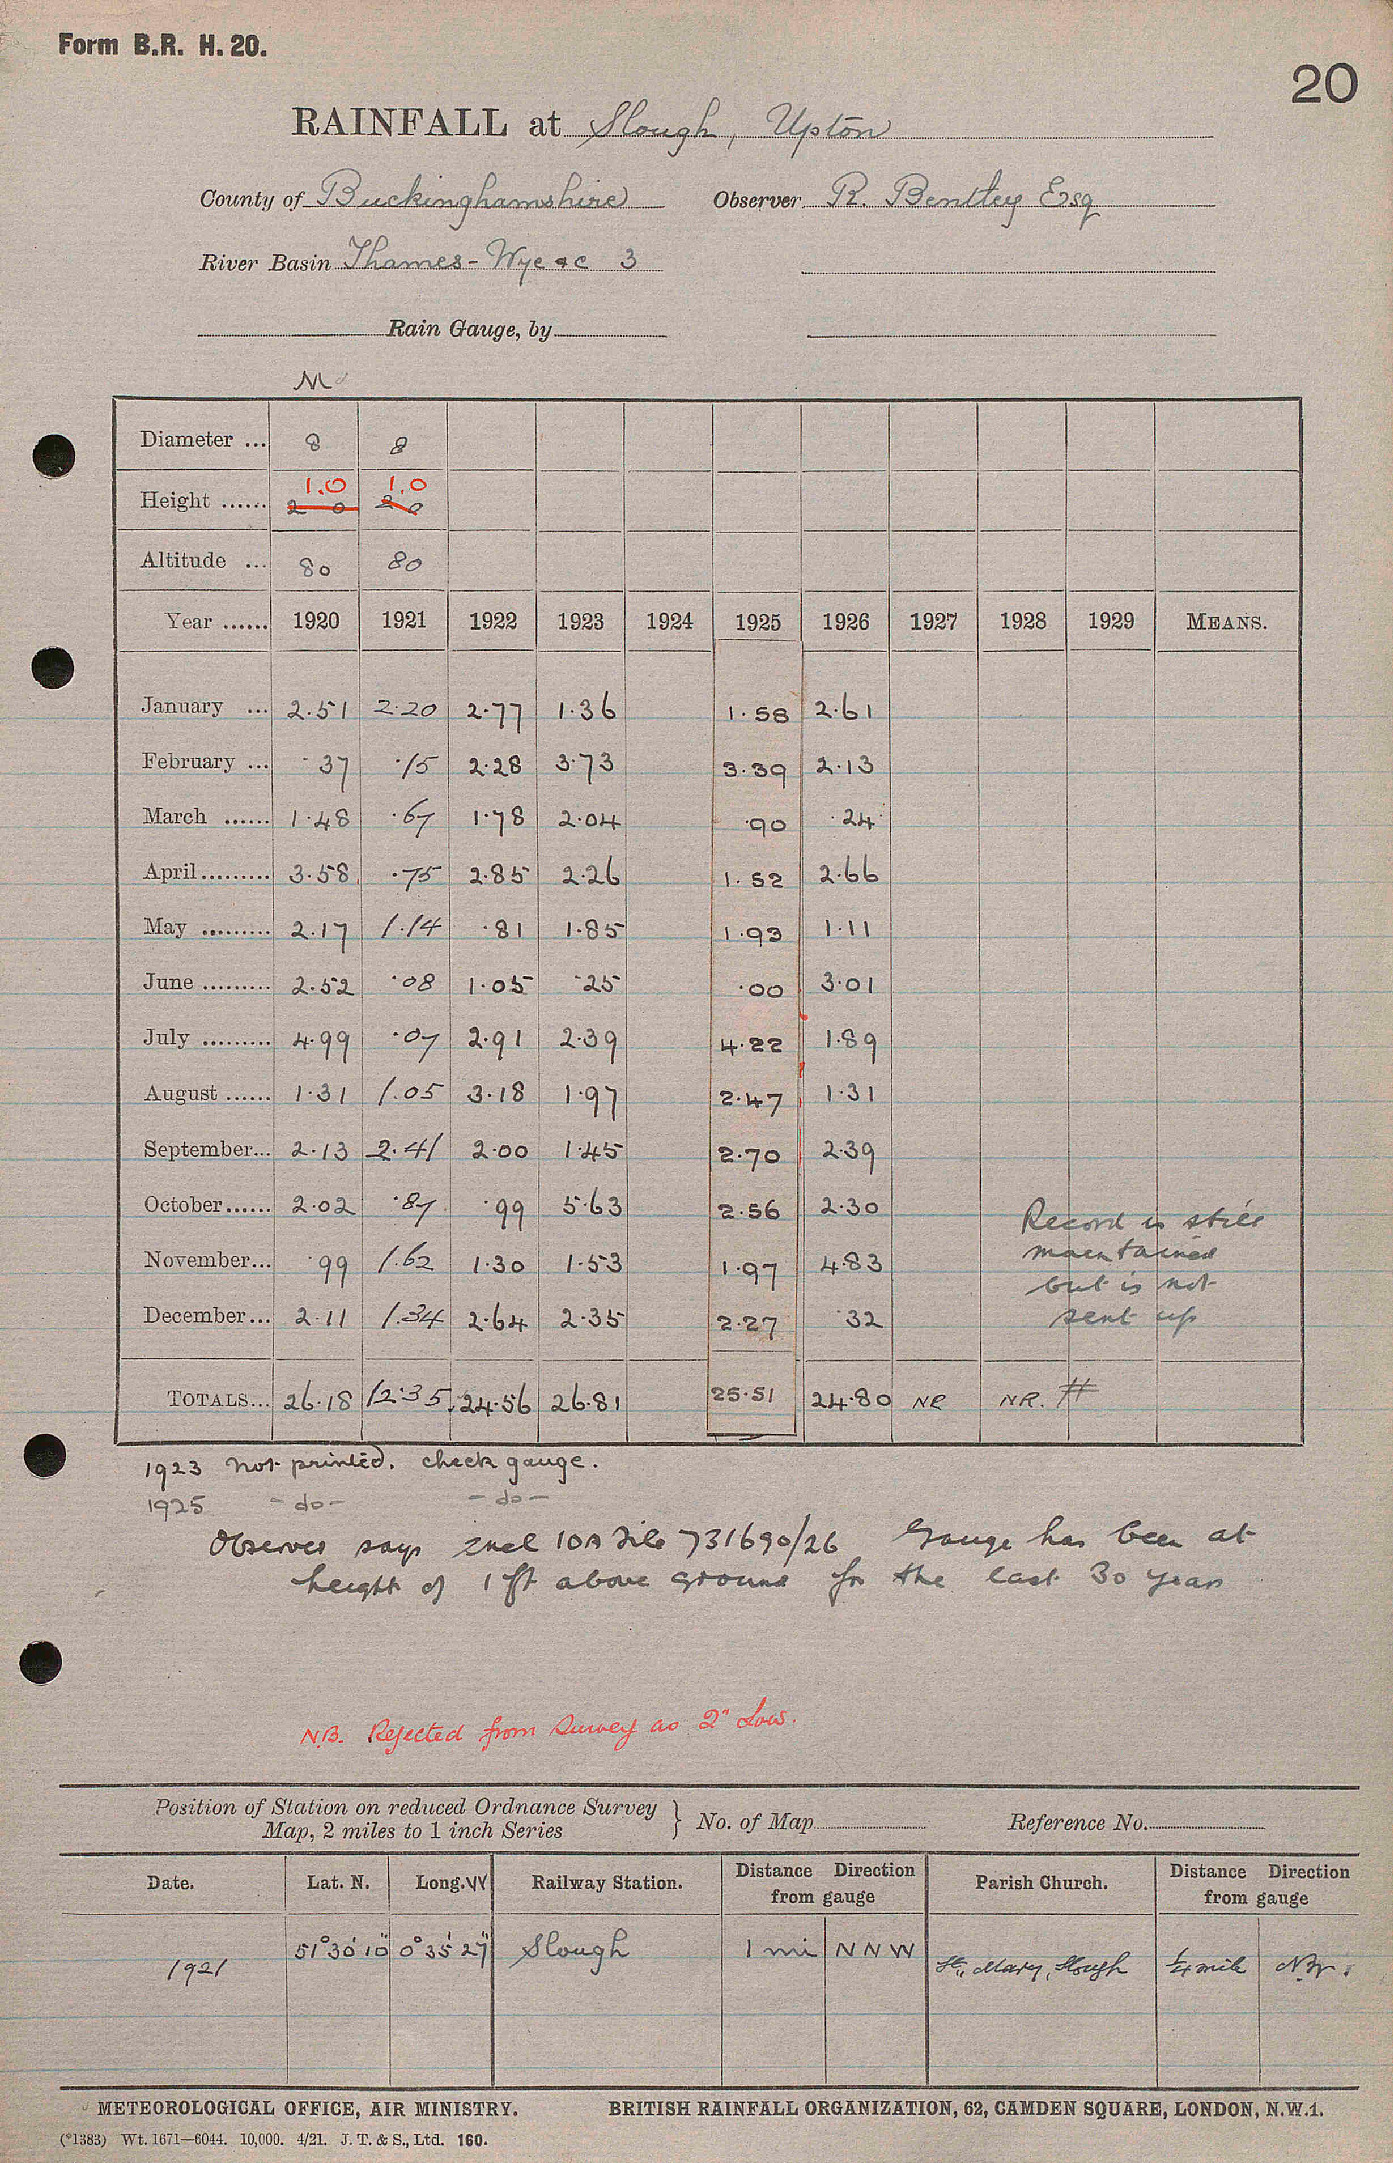 Form B.R. H. 20.
20
RAINFALL at Slough, Upton
County of Buckinghamshire Observer R. Bentley Esq
River Basin Thames - Wye &c 3
Rain Gauge, by
M
Diameter ... 8 8
1.0 1.0
Height ...... 2 0 2 0
Altitude ... 80 80
Year ...... 1920 1921 1922 1923 1924 1925 1926 1927 1928 1929 MEANS.
January ... 2.51 2.20 2.77 1.36 1.58 2.61
February ... .37 .15 2.28 3.73 3.39 2.13
March ...... 1.48 .67 1.78 2.04 .90 .24
April ......... 3.58 .75 2.85 2.26 1.52 2.66
May ......... 2.17 1.14 .81 1.85 1.93 1.11
June ......... 2.52 .08 1.05 .25 .00 3.01
July ......... 4.99 .07 2.91 2.39 4.22 1.89
August ...... 1.31 1.05 3.18 1.97 2.47 1.31
September... 2.13 2.41 2.00 1.45 2.70 2.39
October...... 2.02 .87 .99 5.63 2.56 2.30
November... .99 1.62 1.30 1.53 1.97 4.83
December... 2.11 1.34 2.64 2.35 2.27 .32
Record is still
maintained
but is not
sent up
TOTALS... 26.18 12.35 24.56 26.81 25.51 24.80 NR NR. #
1923 not printed. check gauge.
1925 - do - - do -
Observer says encl 10A File 731690/26 Gauge has been at
height of 1 ft above ground for the last 30 years
N.B. Rejected from Survey as 2" low.
Position of Station on reduced Ordnance Survey
Map, 2 miles to 1 inch Series } No. of Map Reference No.
Date. Lat. N. Long. W Railway Station. Distance Direction from gauge Parish Church. Distance Direction from gauge
1921 51° 30' 10" 0° 35' 27" Slough 1 mi N N W St. Mary, Slough ¼ mile N.W.
METEOROLOGICAL OFFICE, AIR MINISTRY. BRITISH RAINFALL ORGANIZATION, 62, CAMDEN SQUARE, LONDON, N.W.1.
(*1383) Wt. 1671—6044. 10,000. 4/21. J. T. & S., Ltd. 160.